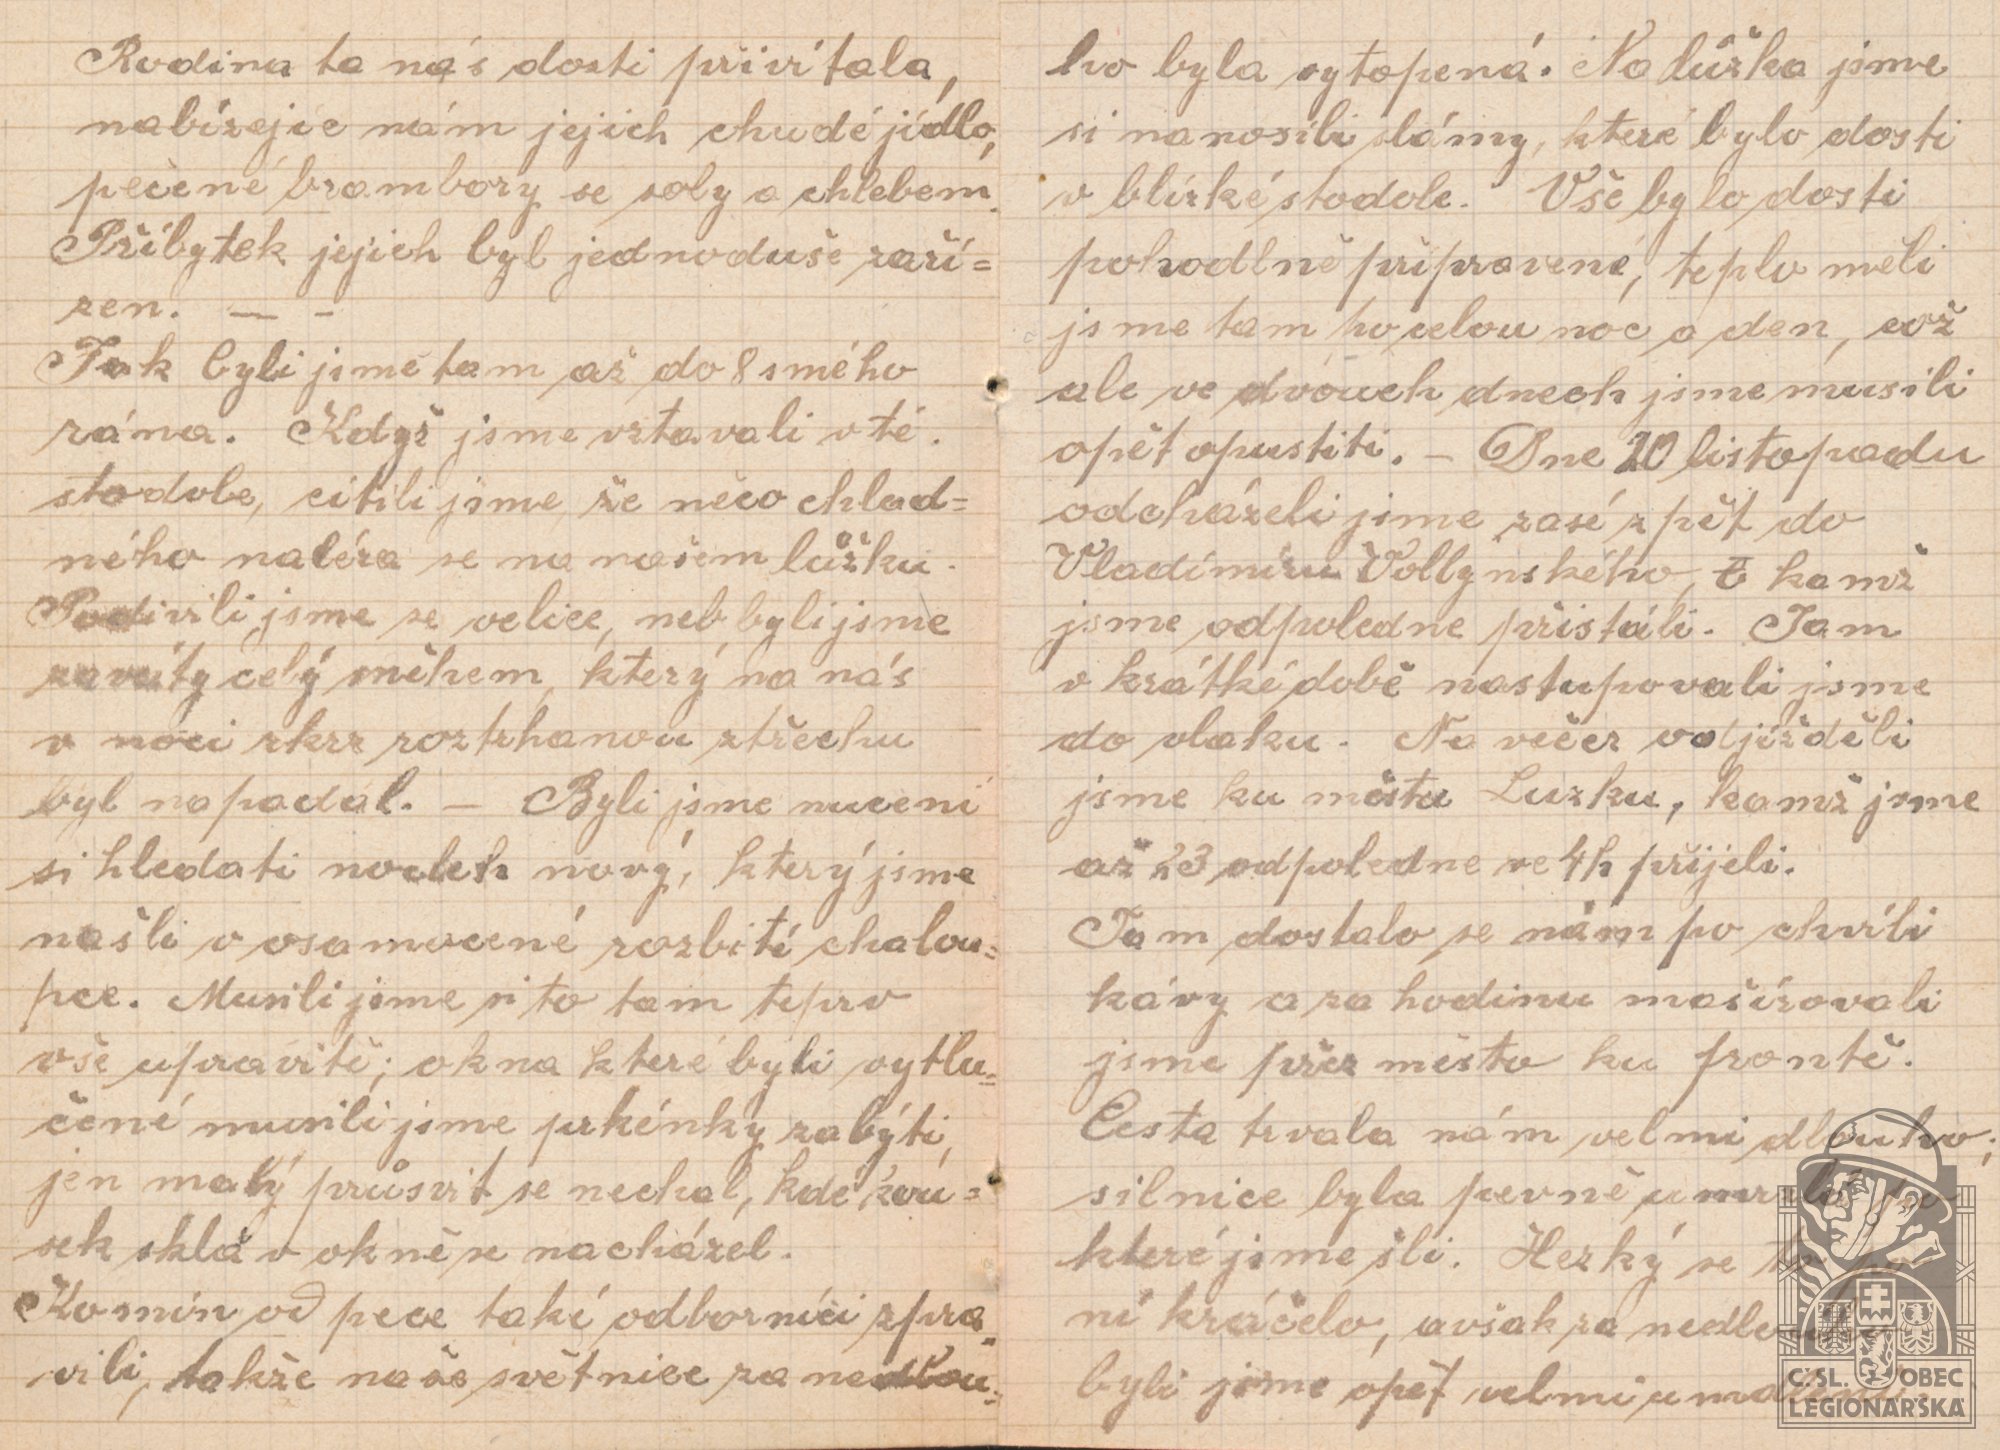 Rodina ta nás dosti přivítala,
nabízejíc nám jejich chudé jídlo,
pečené brambory se soly a chlebem.
Příbytek jejich byl jednoduše zaří=
zen. — -
Tak byli jsme tam až do 8smého
rána. Když jsme vstavali v té
stodole, cítili jsme, že něco chlad=
ného naléza se na našem lůžku.
Podivili jsme se velice, neb byli jsme
zaváty celý sněhem, který na nás
v noci skrz roztrhanou střechu
byl napadal. — Byli jsme nuceni
si hledati nocleh nový, který jsme
našli v osamocené rozbité chalou=
pce. Musili jsme si to tam teprv
vše upravitě; okna které byli vytlu=
čené musili jsme prkénky zabýti,
jen malý průsvit se nechal, kde kou=
sek skla v okně se nacházel.
Komín od pece také odborníci zpra=
vili, takže naše světnice za nedlou=
ho byla vytopená. Na lůžka jsme
si nanosili slámy, které bylo dosti
v blízké stodole. Vše bylo dosti
pohodlně připravené, teplo měli
jsme tam ho celou noc a den, což
ale ve dvouch dnech jsme musili
opět opustiti. — Dne 20 listopadu
odcházeli jsme zasé zpět do
Vladimíru Vollynského, kamž
jsme odpoledne přistáli. Tam
v krátké době nastupovali jsme
do vlaku. Na večer vodjížděli
jsme ku městu Luzku, kamž jsme
až 23 odpoledne ve 4h přijeli.
Tam dostalo se nám po chvíli
kávy a za hodinu mašírovali
jsme přez město ku frontě.
Cesta trvala nám velmi dlouho;
silnice byla pevně umrzlá po
které jsme šli. Hezký se to po
ní kráčelo, avšak za nedlouho
byli jsme opět velmi
C.SL. OBEC
LEGIONÁŘSKÁ